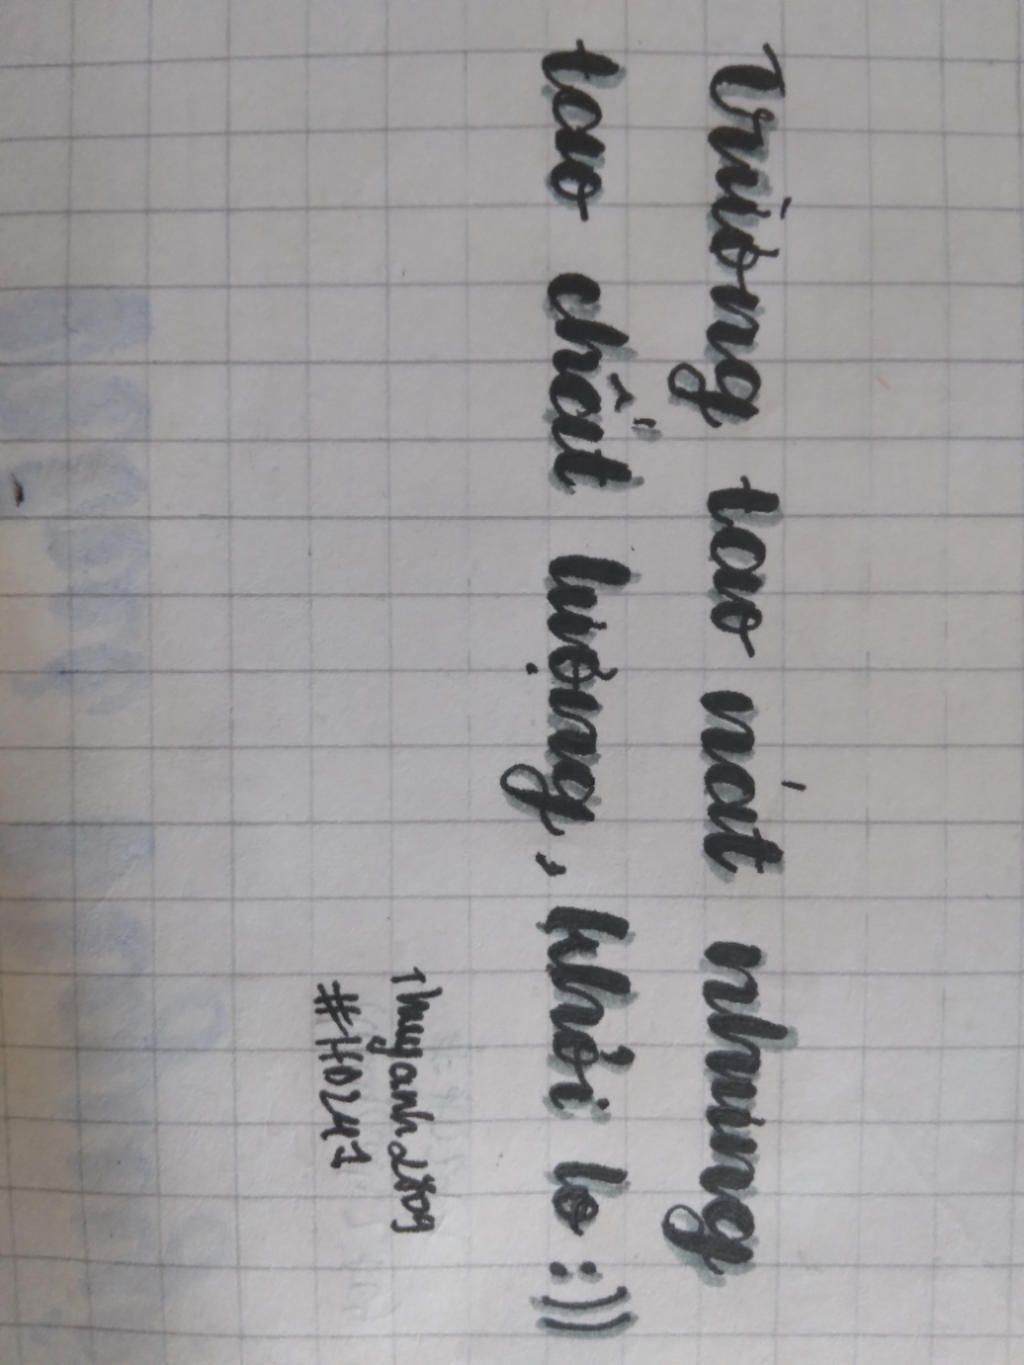 Trường tao nát nhưng
tao chất lượng, khỏi lo :))
Thuyanh2809
#HD241